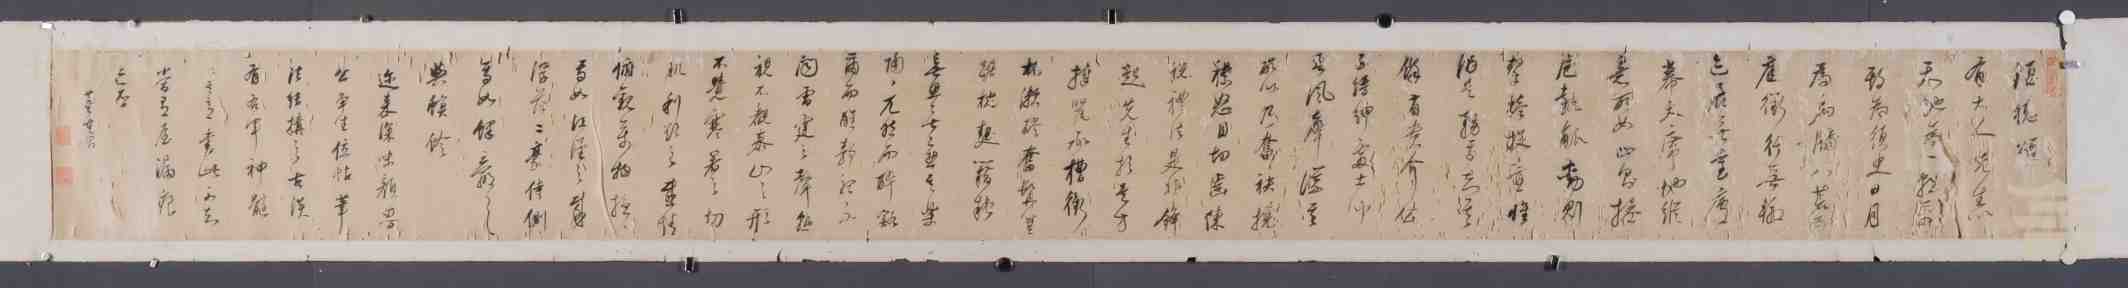 酒德頌
有大人先生
天地為一朝萬
期為須臾日月
為扃牖八荒為
庭衢行無轍
迹居無室廬
幕天席地縱
意所如止則操
卮執觚動則
挈榼提壺惟
酒是務焉知其
餘有貴介公
子縉紳處士聞
吾風聲議其
所以乃奮袂攘
襟怒目切齒陳
說禮法是非鋒
起先生於是方
捧甖承槽銜
杯漱醪奮髯箕
踞枕麴藉糟
無思無慮其樂
陶陶兀然而醉豁
爾而醒靜聽不
聞雷霆之聲熟
視不覩泰山之形
不覺寒暑之切
肌利欲之感情
俯觀萬物擾擾
焉如江漢之載
浮萍二豪侍側
焉如蜾蠃之
與螟蛉
近來深味顏魯
公爭坐位帖筆
法結搆之古淡
有右軍神
書此不知
當有屋漏痕
意否
董其昌